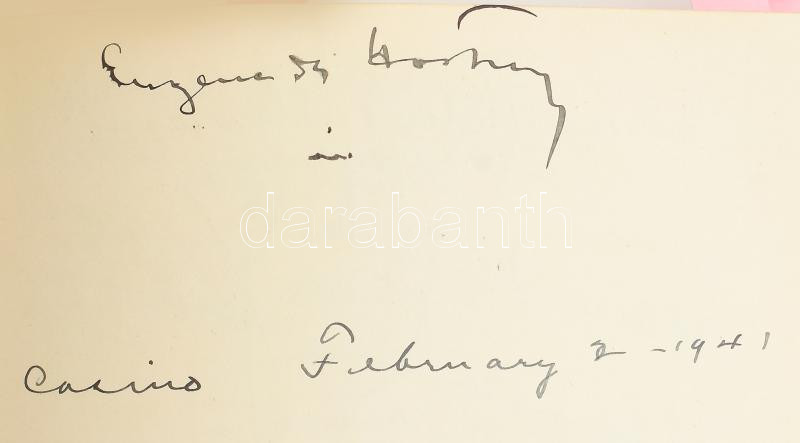 Eugene de Horthy
in
darabanth
Casino February 2 - 1941